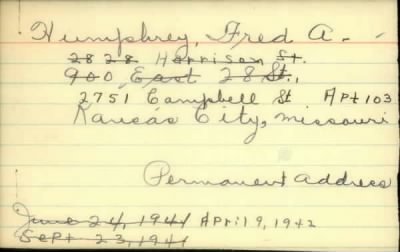 Humphrey, Fred A.
2828 Harrison St.
900 East 28 St.,
2751 Campbell St. Apt 103
Kansas City, Missouri
Permanent Address
June 24, 1941 April 9, 1942
Sept 23, 1941